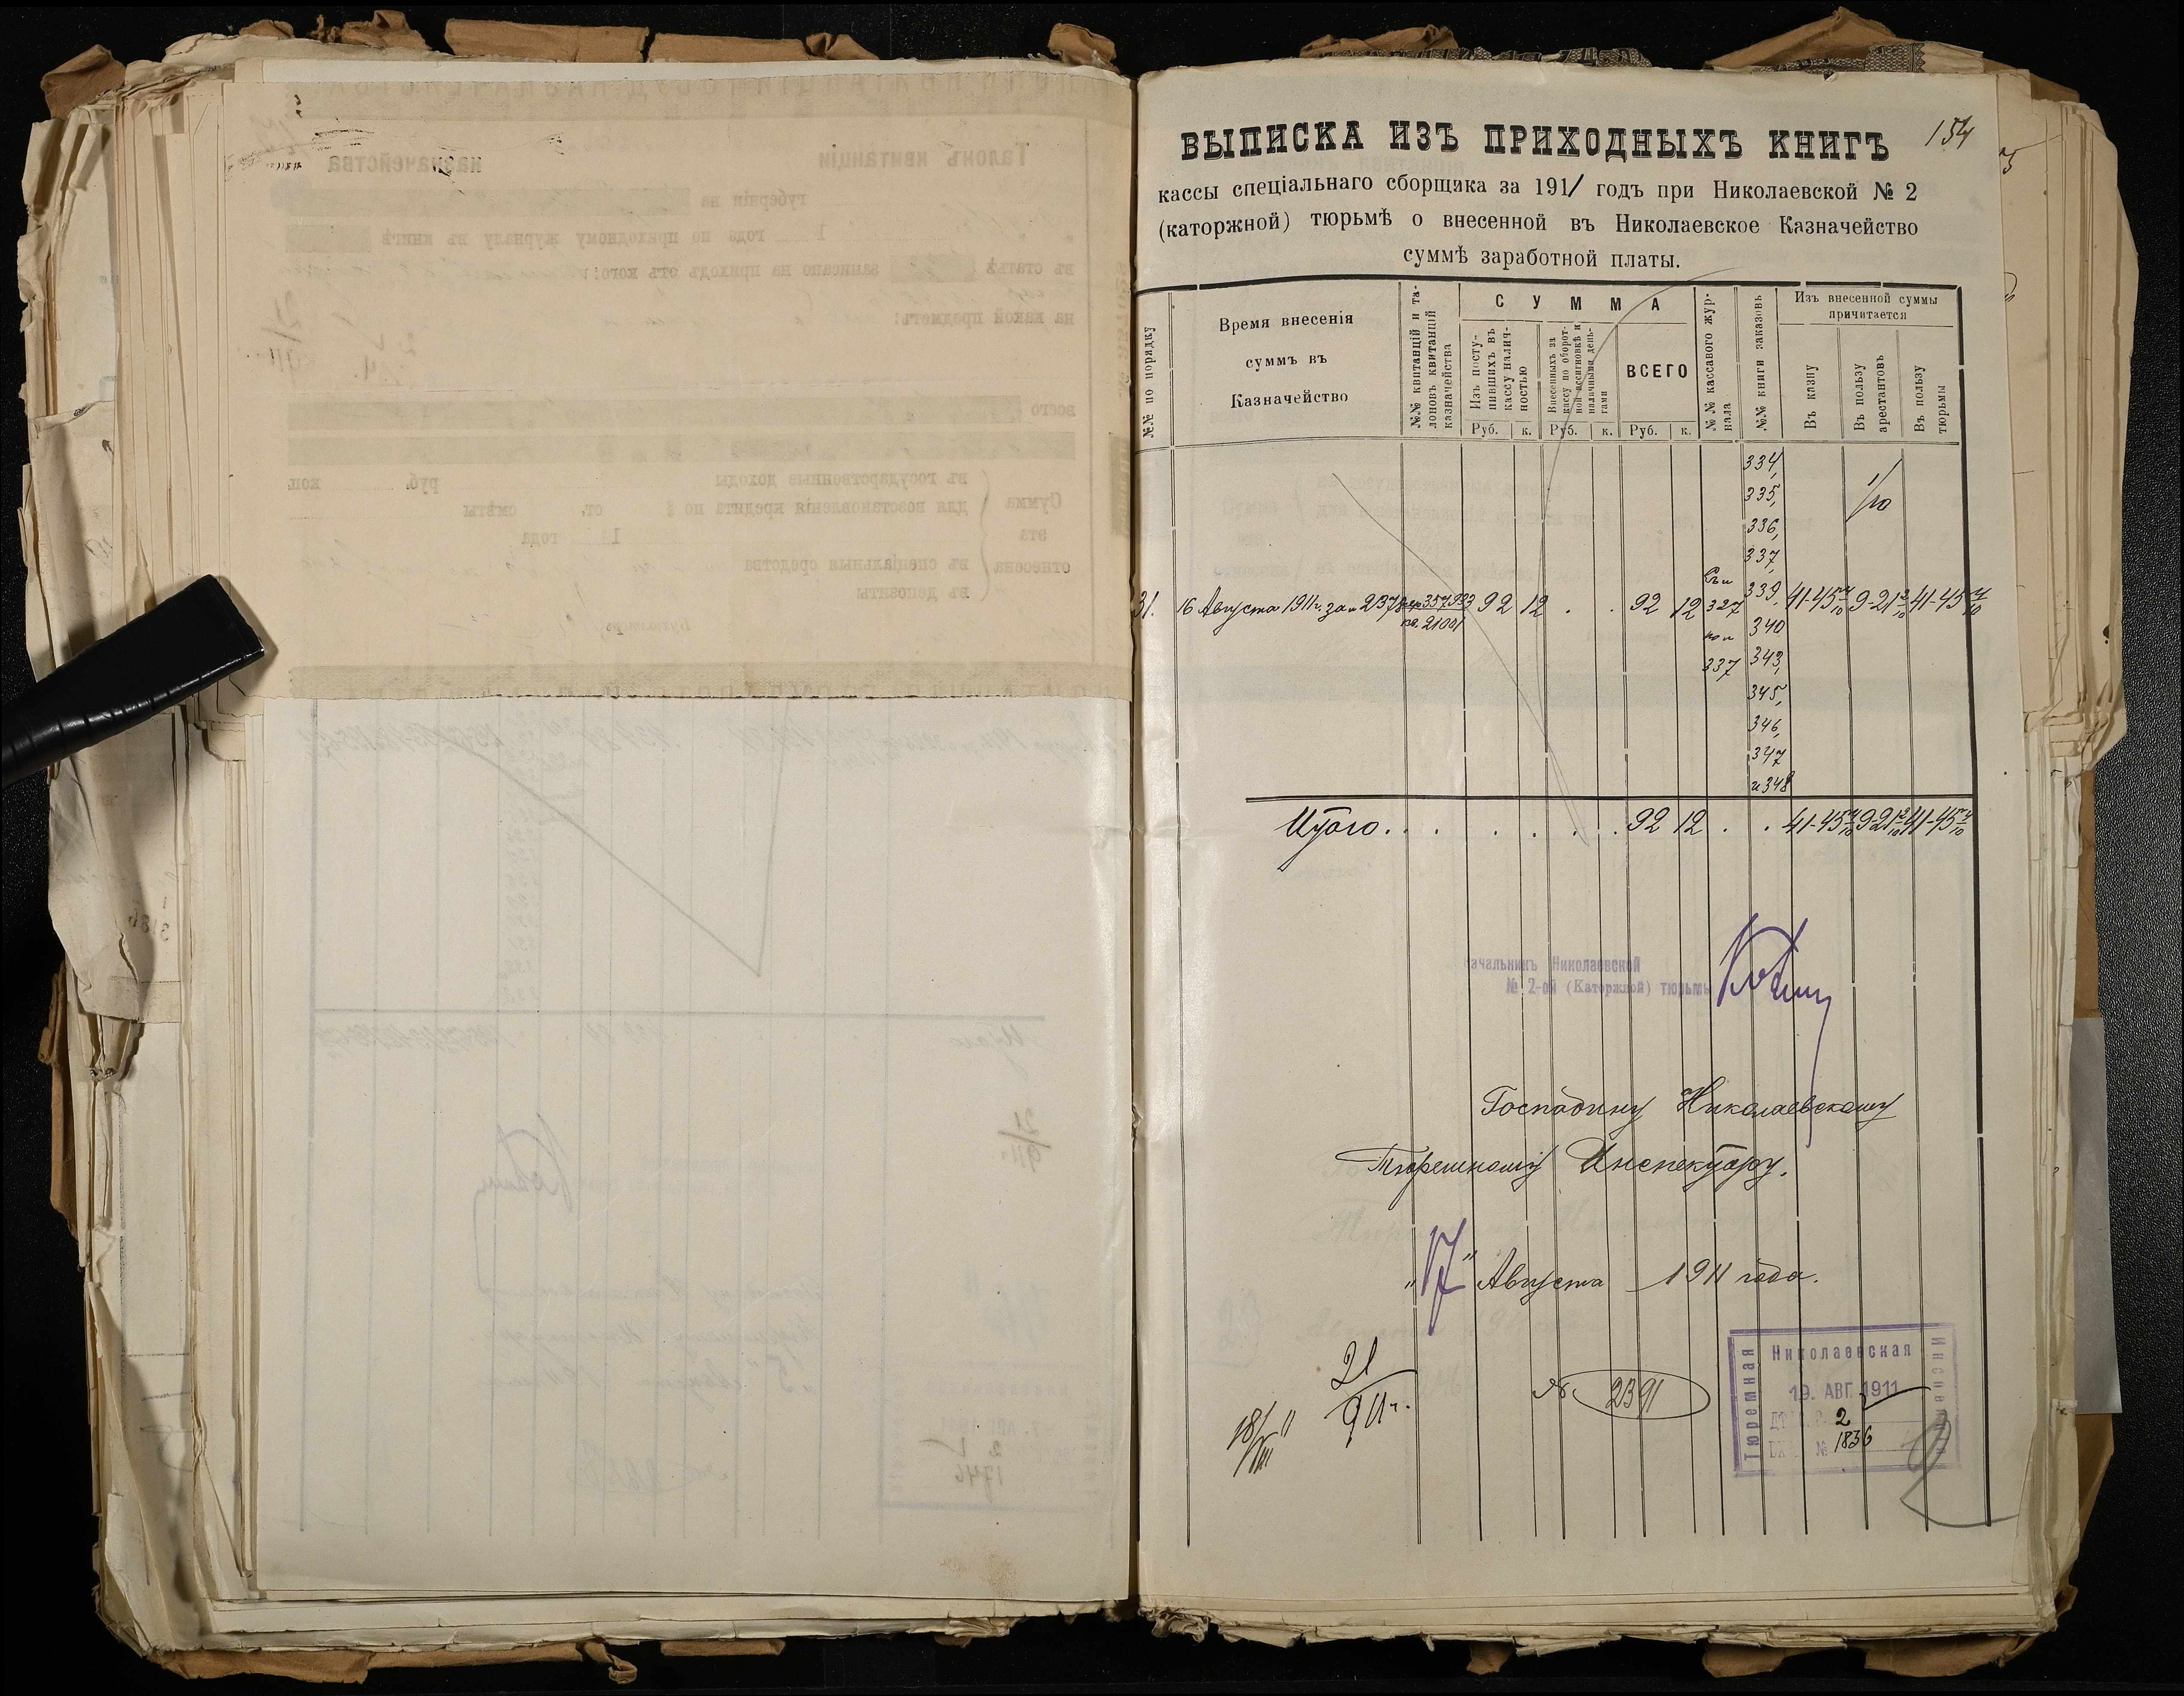 154
ВЫПИСКА ИЗЪ ПРИХОДНЫХЪ КНИГЪ
кассы спеціальнаго сборщика за 1911 годъ при Николаевской № 2
(каторжной) тюрьмѣ о внесенной въ Николаевское Казначейство
суммѣ заработной платы.
№№ по порядку
Время внесенія
суммъ въ
Казначейство
№№ квитанцій и та-
лоновъ квитанцій
казначейства
СУММА
Изъ посту-
пившихъ въ
кассу налич-
ностью
Внесенныхъ за
кассу по оборот-
ной ассигновкѣ и
наличными день-
гами
ВСЕГО
Руб. к. Руб. к. Руб. к.
№№ кассаваго жур-
нала
№№ книги заказовъ
Изъ внесенной суммы
причитается
Въ казну
Въ пользу
арестантовъ
Въ пользу
тюрьмы
334,
335,
1/10
336,
337,
31. 16 Августа 1911г. за № 237 357933 92 12 . . 92 12 327 339, 41-45 4/10 9-21 2/10 41-45 4/10
кв. 21001
по № 340
337 343,
345,
346,
347
и 348
Итого . . . . . . . 92 12 . . 41-45 4/10 9-21 2/10 41-45 4/10
Начальникъ Николаевской
№ 2-ой (Каторжной) тюрьмы
Господину Николаевскому
Тюремному Инспектору.
„17" Августа 1911 года.
21
911г.
18/VIII 11
№ 2391
Николаевская
Тюремная
Инспек
19. АВГ. 1911
2
№ 1836
Талонъ квитанціи
казначейства
губерніи на
1 года по приходному журналу въ книгѣ
въ статьѣ записано на приходъ отъ кого:
на какой предметъ:
всего
Сумма
эта
отнесена
въ государственные доходы руб. коп.
для возстановленія кредита по § ст. смѣты
1 года
въ спеціальныя средства
въ депозиты
Бухгалтеръ
Итого
21
911г.
2
1746